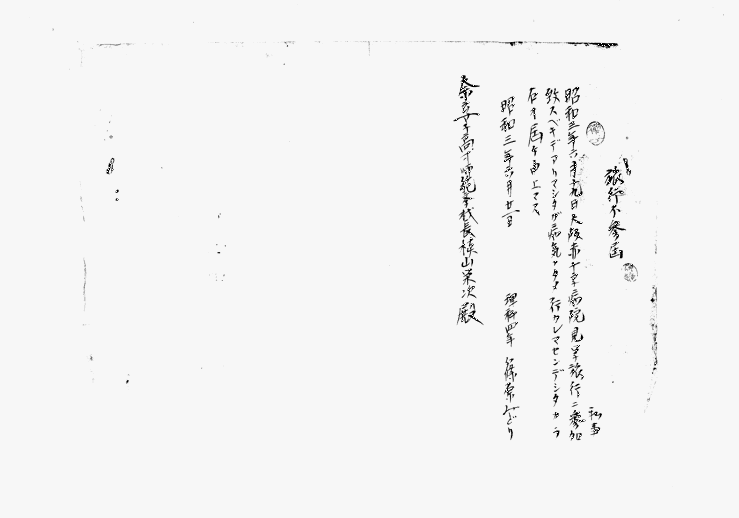 旅行不参届
私事
昭和三年六月十九日大阪赤十字病院見学旅行ニ参加
致スベキデアリマシタガ病気ノタメ行クレマセンデシタカラ
右御届ケ申上マス
昭和三年六月廿一日
理科四年 篠原みどり
奈良女子高等師範学校長槇山栄次殿